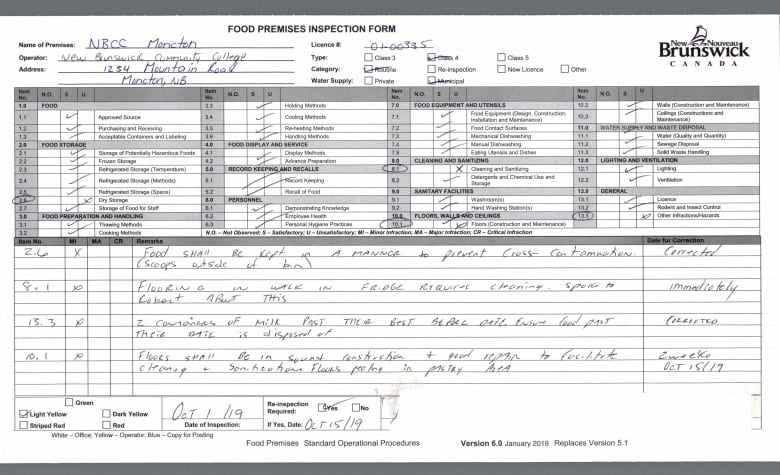 FOOD PREMISES INSPECTION FORM
Name of Premises: NBCC Moncton
Licence #: 01-00335
Operator: New Brunswick Community College
Type: Class 3 Class 4 Class 5
Address: 1234 Mountain Road
Category: Routine Re-inspection New Licence Other
Moncton, NB
Water Supply: Private Municipal
New Nouveau
Brunswick
CANADA
Item No. N.O. S U
1.0 FOOD
1.1 Approved Source
1.2 Purchasing and Receiving
1.3 Acceptable Containers and Labeling
2.0 FOOD STORAGE
2.1 Storage of Potentially Hazardous Foods
2.2 Frozen Storage
2.3 Refrigerated Storage (Temperature)
2.4 Refrigerated Storage (Methods)
2.5 Refrigerated Storage (Space)
2.6 Dry Storage
2.7 Storage of Food for Staff
3.0 FOOD PREPARATION AND HANDLING
3.1 Thawing Methods
3.2 Cooking Methods
Item No. N.O. S U
3.3 Holding Methods
3.4 Cooling Methods
3.5 Re-heating Methods
3.6 Handling Methods
4.0 FOOD DISPLAY AND SERVICE
4.1 Display Methods
4.2 Advance Preparation
5.0 RECORD KEEPING AND RECALLS
5.1 Record Keeping
5.2 Recall of Food
6.0 PERSONNEL
6.1 Demonstrating Knowledge
6.2 Employee Health
6.3 Personal Hygiene Practices
Item No. N.O. S U
7.0 FOOD EQUIPMENT AND UTENSILS
7.1 Food Equipment (Design, Construction,
Installation and Maintenance)
7.2 Food Contact Surfaces
7.3 Mechanical Dishwashing
7.4 Manual Dishwashing
7.5 Eating Utensils and Dishes
8.0 CLEANING AND SANITIZING
8.1 Cleaning and Sanitizing
8.2 Detergents and Chemical Use and
Storage
9.0 SANITARY FACILITIES
9.1 Washroom(s)
9.2 Hand Washing Station(s)
10.0 FLOORS, WALLS AND CEILINGS
10.1 Floors (Construction and Maintenance)
Item No. N.O. S U
10.2 Walls (Construction and Maintenance)
10.3 Ceilings (Constructions and
Maintenance)
11.0 WATER SUPPLY AND WASTE DISPOSAL
11.1 Water (Quality and Quantity)
11.2 Sewage Disposal
11.4 Solid Waste Handling
12.0 LIGHTING AND VENTILATION
12.1 Lighting
12.2 Ventilation
13.0 GENERAL
13.1 Licence
13.2 Rodent and Insect Control
13.3 Other Infractions/Hazards
N.O. – Not Observed; S – Satisfactory; U – Unsatisfactory; MI – Minor Infraction; MA – Major Infraction; CR – Critical Infraction
Item No. MI MA CR Remarks Date for Correction
2.6 X Food SHALL BE kept in A MANNER to prevent Cross Contamination. Corrected
(Scoops outside of bin)
8.1 X FLOORING IN WALK IN FRIDGE REQUIRES cleaning. Spoke to immediately
Robert ABOUT This
13.3 X 2 CONTAINERS OF MILK PAST THEIR BEST BEFORE DATE. Ensure food past CORRECTED
THEIR DATE is disposed of
10.1 X Floors SHALL BE in sound construction + good repair to facilitate 2 weeks
cleaning + Sanitization. Floors peeling in pastry Area OCT 15/19
Green
Light Yellow Dark Yellow
Striped Red Red
Oct 1/19
Date of Inspection:
Re-inspection
Required: Yes No
If Yes, Date: OCT 15/19
White – Office; Yellow – Operator; Blue – Copy for Posting
Food Premises Standard Operational Procedures
Version 6.0 January 2019 Replaces Version 5.1